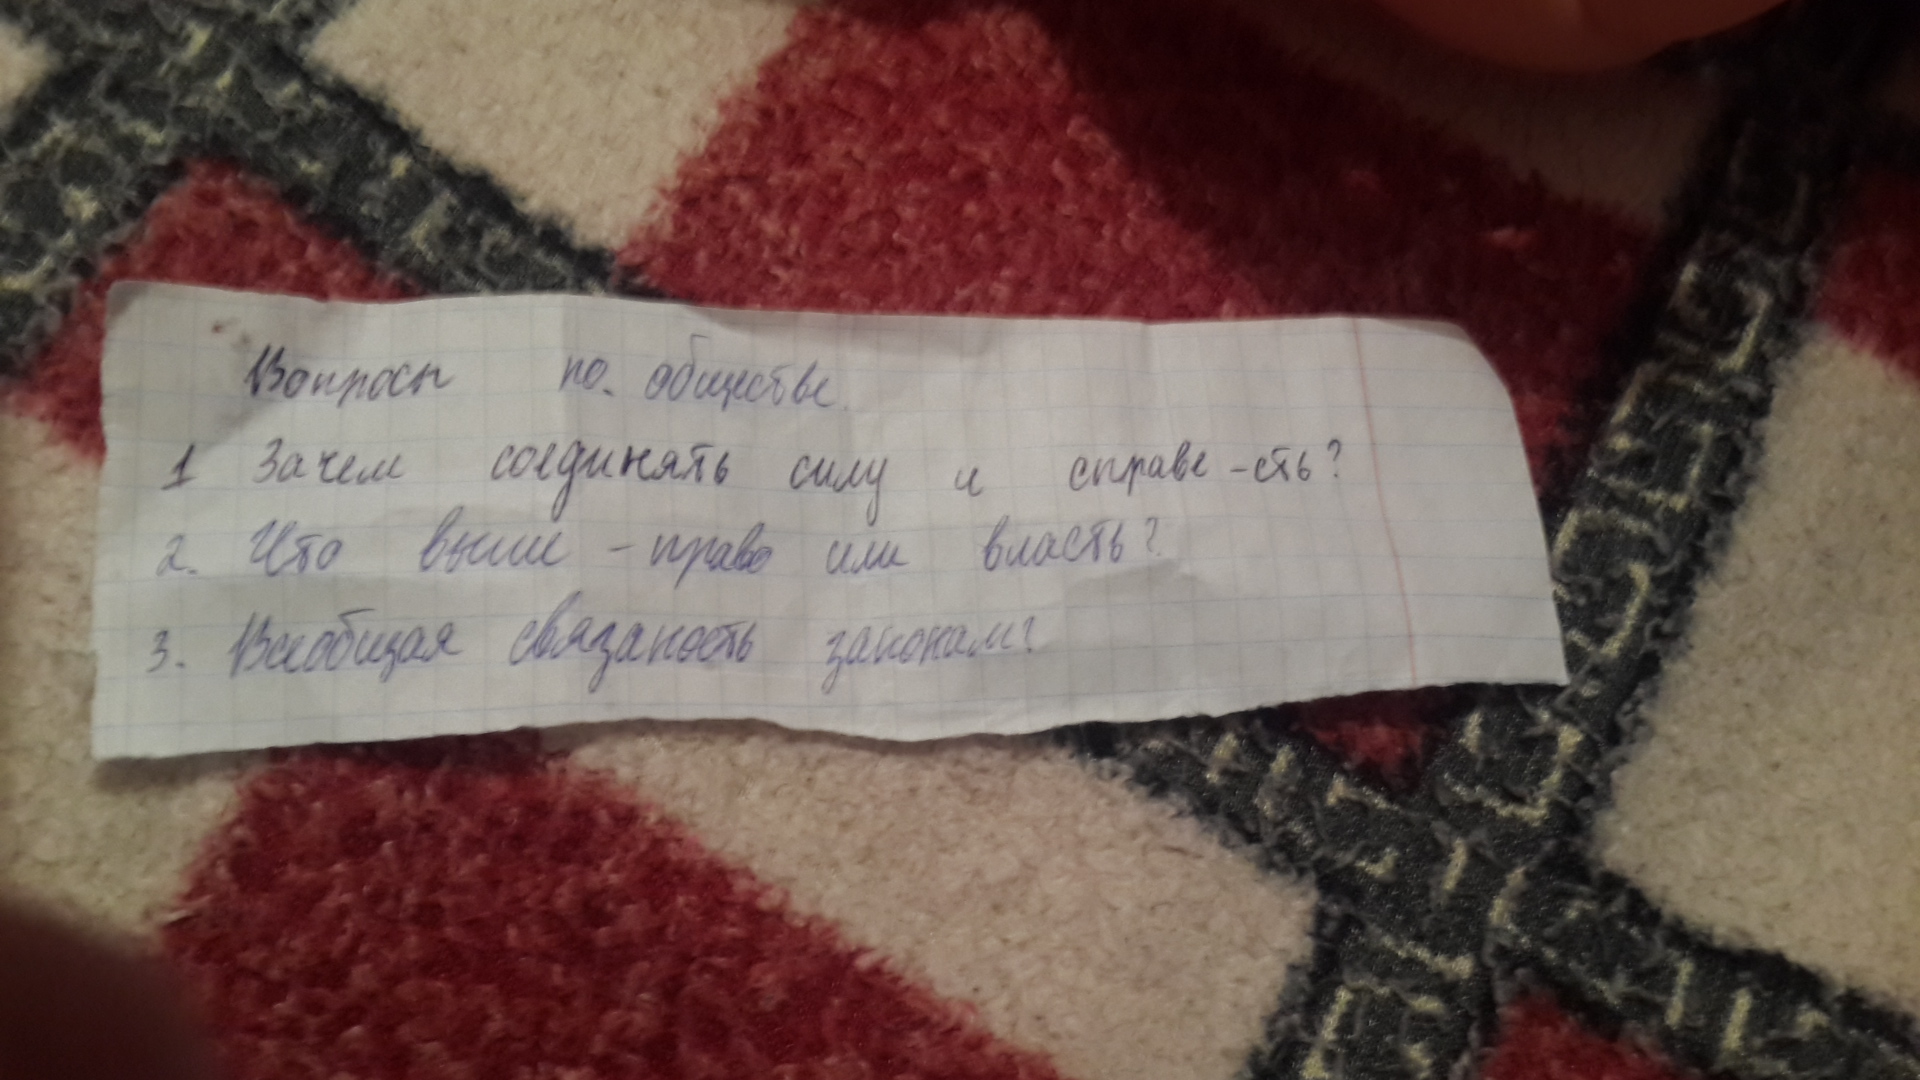 Вопросы по. обществе.
1 Зачем соединять силу и справе-сть?
2. Что выше - право или власть?
3. Всеобщая связаность законам?